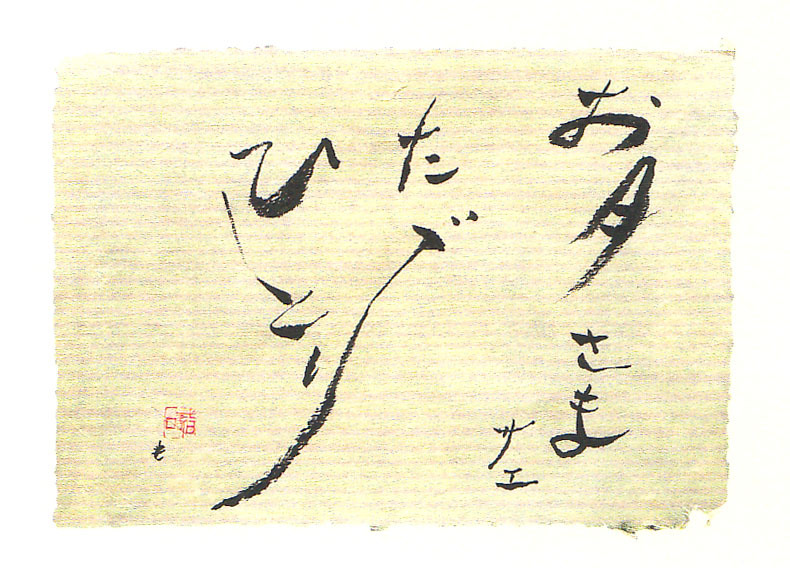 お月さま
サエ
たゞ
ひとり
も